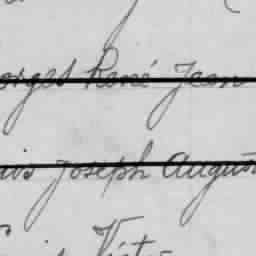 orges René Jean
uis Joseph August
Vict